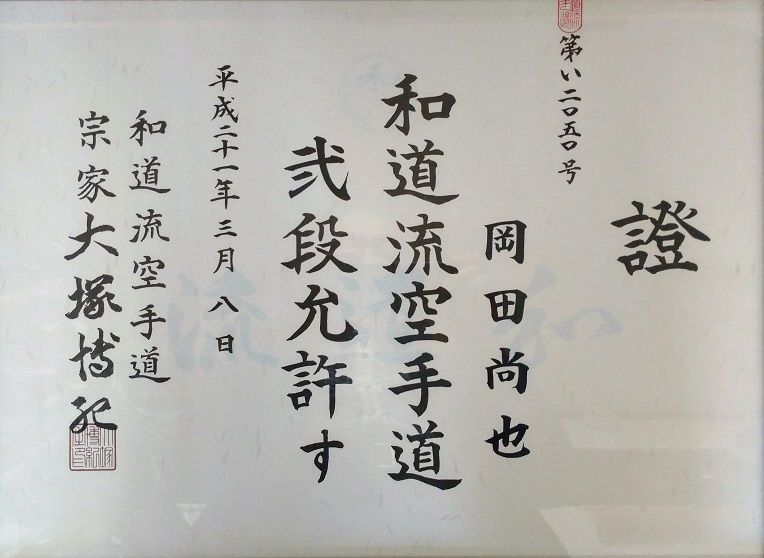 第い二〇五〇号
證
岡田尚也
和道流空手道
弐段允許す
平成二十一年三月八日
和道流空手道
宗家大塚博紀
和道流